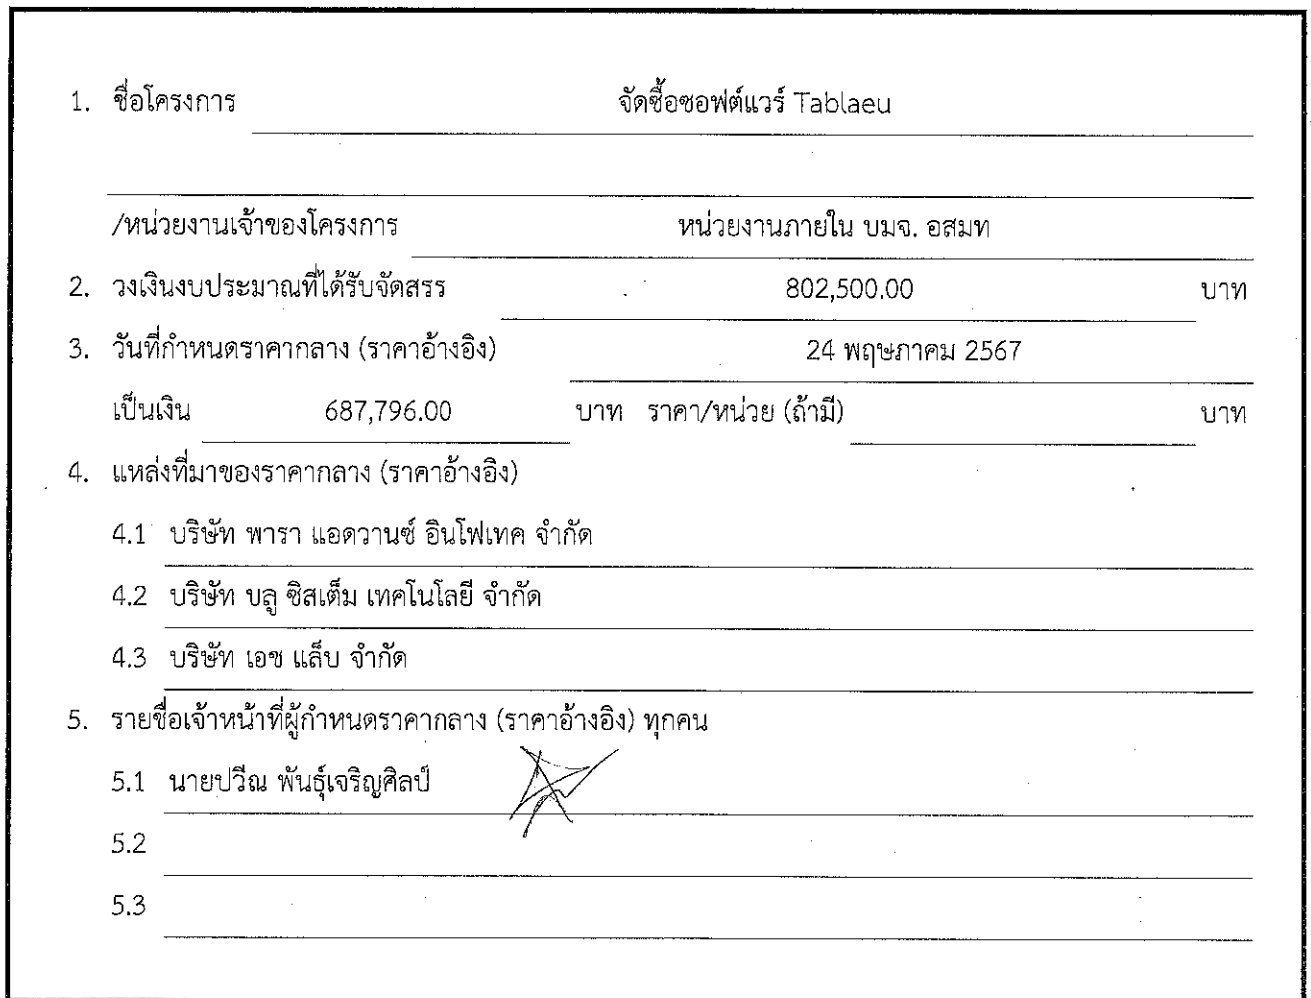 1. ชื่อโครงการ จัดซื้อซอฟต์แวร์ Tablaeu
/หน่วยงานเจ้าของโครงการ หน่วยงานภายใน บมจ. อสมท
2. วงเงินงบประมาณที่ได้รับจัดสรร 802,500.00 บาท
3. วันที่กำหนดราคากลาง (ราคาอ้างอิง) 24 พฤษภาคม 2567
เป็นเงิน 687,796.00 บาท ราคา/หน่วย (ถ้ามี) บาท
4. แหล่งที่มาของราคากลาง (ราคาอ้างอิง)
4.1 บริษัท พารา แอดวานซ์ อินโฟเทค จำกัด
4.2 บริษัท บลู ซิสเต็ม เทคโนโลยี จำกัด
4.3 บริษัท เอช แล็บ จำกัด
5. รายชื่อเจ้าหน้าที่ผู้กำหนดราคากลาง (ราคาอ้างอิง) ทุกคน
5.1 นายปวีณ พันธุ์เจริญศิลป์
5.2
5.3